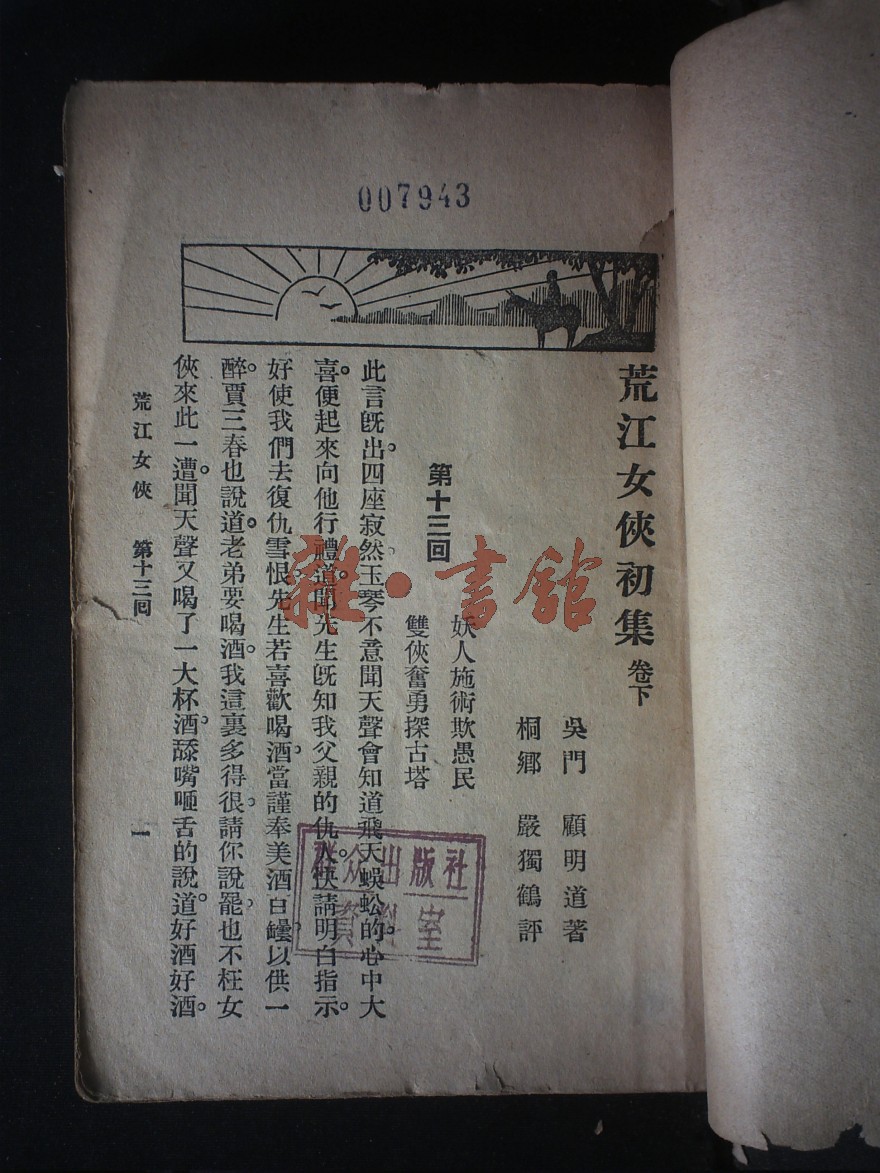 007943
荒江女俠初集 卷下
吳門 顧明道著
桐鄉 嚴獨鶴評
第十三回
妖人施術欺愚民
雙俠奮勇探古塔
此言既出。四座寂然。玉琴不意聞天聲會知道飛天蜈蚣的。心中大
喜。便起來向他行禮道。聞先生既知我父親的仇人。快請明白指示。
好使我們去復仇雪恨。先生若喜歡喝酒。當謹奉美酒百罎。以供一
醉。賈三春也說道。老弟要喝酒。我這裏多得很。請你說罷。也不枉女
俠來此一遭。聞天聲又喝了一大杯酒。舔嘴咂舌的說道。好酒好酒。
荒江女俠 第十三回
一
群众出版社
資料室
雜·書館